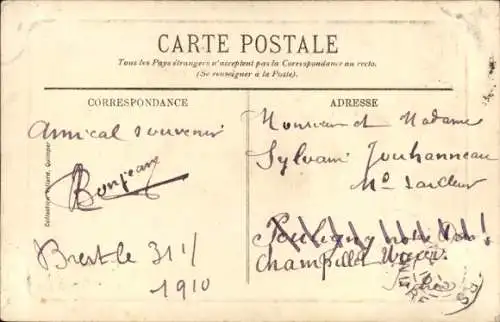 CARTE POSTALE
Tous les Pays étrangers n'acceptent pas la Correspondance au recto.
(Se renseigner à la Poste).
CORRESPONDANCE
ADRESSE
Amical souvenir
Bonjean
Brest le 31/1
1910
Monsieur et Madame
Sylvain Jouhanneau
Md tailleur
Champillet
Collection Villard, Quimper